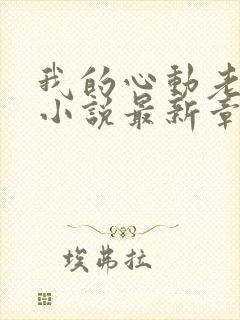 我的心動老
小說最新章
埃弗拉